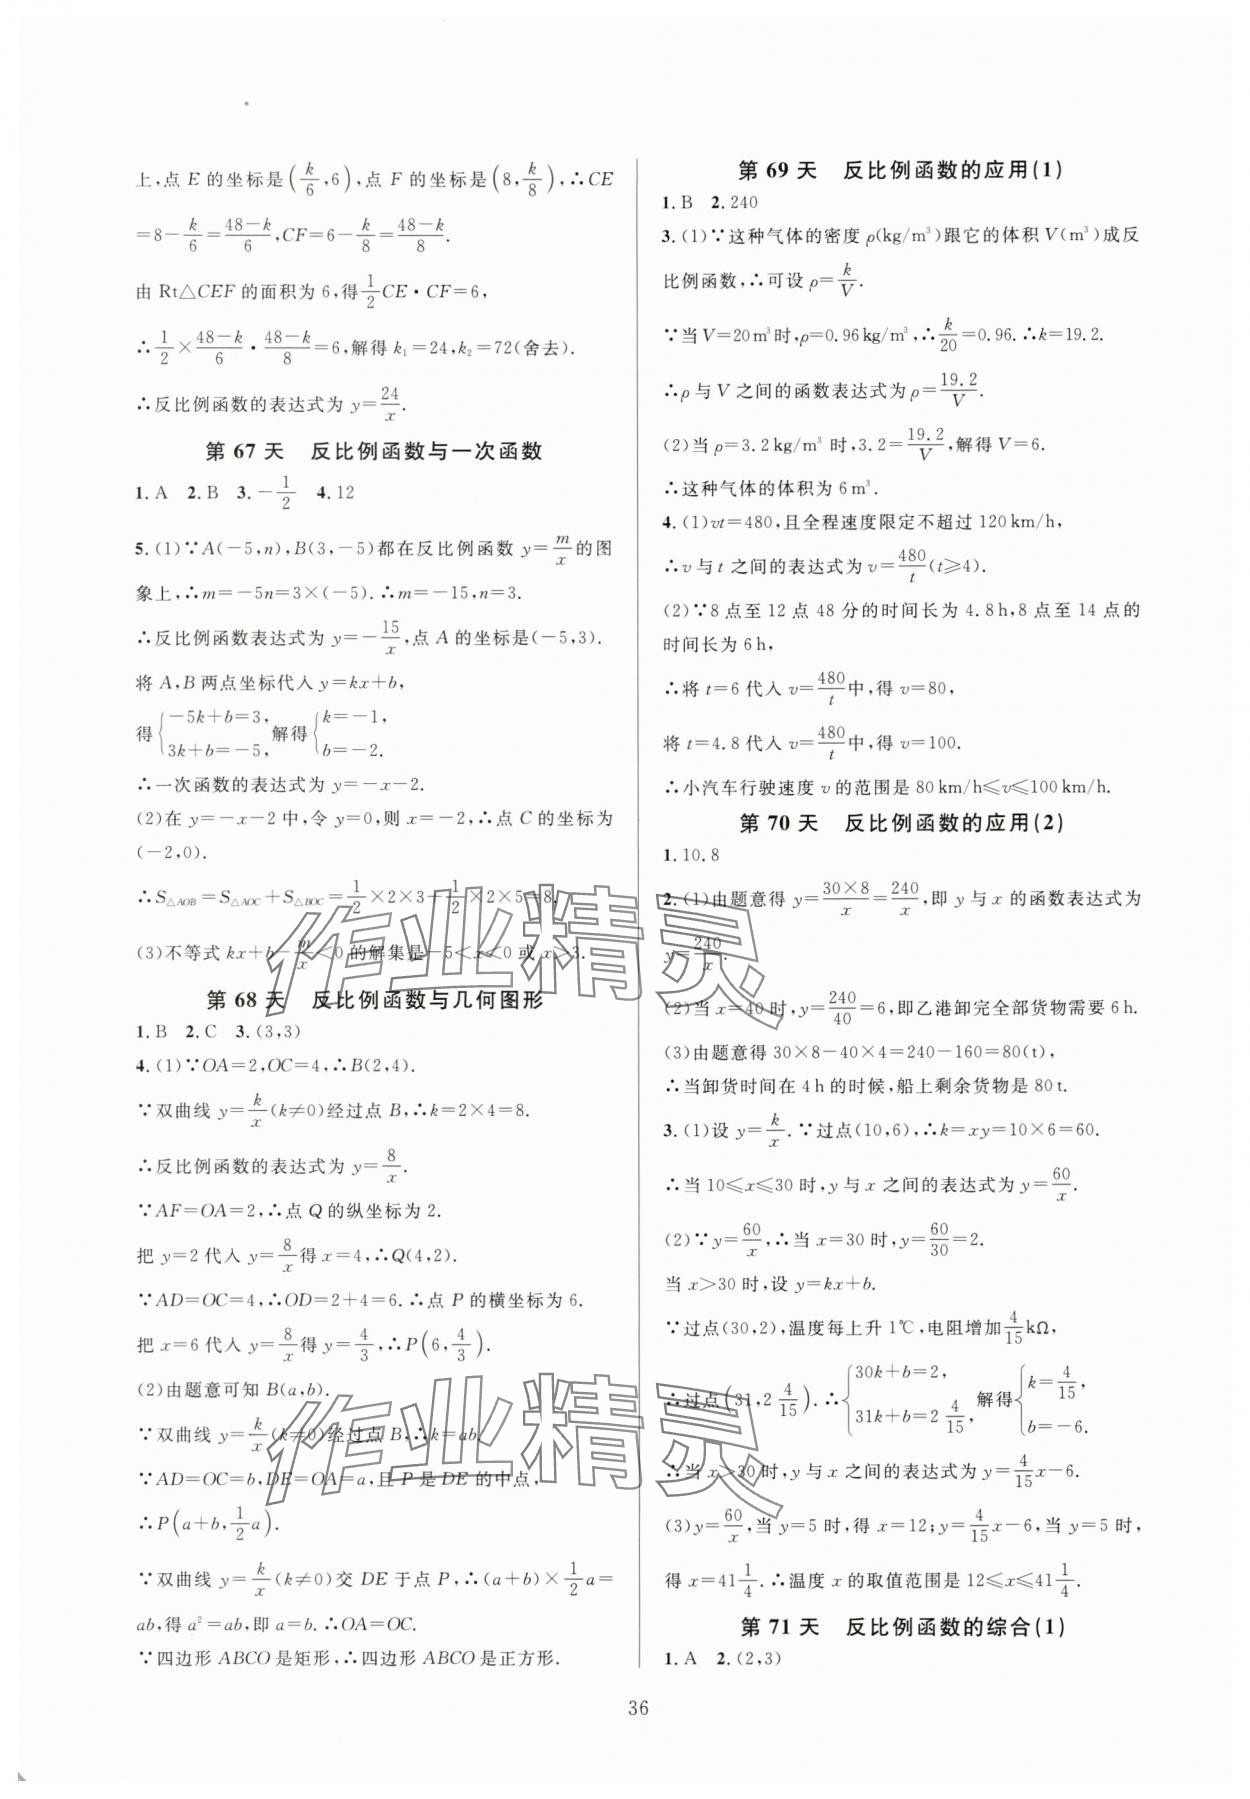 上,点 E 的坐标是(k/6,6),点 F 的坐标是(8,k/8),∴CE
=8-k/6=(48-k)/6,CF=6-k/8=(48-k)/8.
由 Rt△CEF 的面积为 6,得1/2CE·CF=6,
∴1/2×(48-k)/6·(48-k)/8=6,解得 k₁=24,k₂=72(舍去).
∴反比例函数的表达式为 y=24/x.
第 67 天 反比例函数与一次函数
1.A 2.B 3.-1/2 4.12
5.(1)∵A(-5,n),B(3,-5)都在反比例函数 y=m/x的图
象上,∴m=-5n=3×(-5).∴m=-15,n=3.
∴反比例函数表达式为 y=-15/x,点 A 的坐标是(-5,3).
将 A,B 两点坐标代入 y=kx+b,
得{-5k+b=3, 3k+b=-5,解得{k=-1, b=-2.
∴一次函数的表达式为 y=-x-2.
(2)在 y=-x-2 中,令 y=0,则 x=-2,∴点 C 的坐标为
(-2,0).
∴S△AOB=S△AOC+S△BOC=1/2×2×3+1/2×2×5=8.
(3)不等式 kx+b-m/x<0 的解集是-5<x<0 或 x>3.
第 68 天 反比例函数与几何图形
1.B 2.C 3.(3,3)
4.(1)∵OA=2,OC=4,∴B(2,4).
∵双曲线 y=k/x(k≠0)经过点 B,∴k=2×4=8.
∴反比例函数的表达式为 y=8/x.
∵AF=OA=2,∴点 Q 的纵坐标为 2.
把 y=2 代入 y=8/x得 x=4,∴Q(4,2).
∵AD=OC=4,∴OD=2+4=6.∴点 P 的横坐标为 6.
把 x=6 代入 y=8/x得 y=4/3,∴P(6,4/3).
(2)由题意可知 B(a,b).
∵双曲线 y=k/x(k≠0)经过点 B,∴k=ab.
∵AD=OC=b,DE=OA=a,且 P 是 DE 的中点,
∴P(a+b,1/2a).
∵双曲线 y=k/x(k≠0)交 DE 于点 P,∴(a+b)×1/2a=
ab,得 a²=ab,即 a=b.∴OA=OC.
∵四边形 ABCO 是矩形,∴四边形 ABCO 是正方形.
第 69 天 反比例函数的应用(1)
1.B 2.240
3.(1)∵这种气体的密度 ρ(kg/m³)跟它的体积 V(m³)成反
比例函数,∴可设 ρ=k/V.
∵当 V=20m³时,ρ=0.96kg/m³,∴k/20=0.96.∴k=19.2.
∴ρ 与 V 之间的函数表达式为 ρ=19.2/V.
(2)当 ρ=3.2kg/m³ 时,3.2=19.2/V,解得 V=6.
∴这种气体的体积为 6m³.
4.(1)vt=480,且全程速度限定不超过 120km/h,
∴v 与 t 之间的表达式为 v=480/t(t≥4).
(2)∵8 点至 12 点 48 分的时间长为 4.8h,8 点至 14 点的
时间长为 6h,
∴将 t=6 代入 v=480/t中,得 v=80,
将 t=4.8 代入 v=480/t中,得 v=100.
∴小汽车行驶速度 v 的范围是 80km/h≤v≤100km/h.
第 70 天 反比例函数的应用(2)
1.10.8
2.(1)由题意得 y=30×8/x=240/x,即 y 与 x 的函数表达式为
y=240/x.
(2)当 x=40 时,y=240/40=6,即乙港卸完全部货物需要 6h.
(3)由题意得 30×8-40×4=240-160=80(t),
∴当卸货时间在 4h 的时候,船上剩余货物是 80t.
3.(1)设 y=k/x.∵过点(10,6),∴k=xy=10×6=60.
∴当 10≤x≤30 时,y 与 x 之间的表达式为 y=60/x.
(2)∵y=60/x,∴当 x=30 时,y=60/30=2.
当 x>30 时,设 y=kx+b.
∵过点(30,2),温度每上升 1℃,电阻增加4/15kΩ,
∴过点(31,2 4/15).∴{30k+b=2, 31k+b=2 4/15,解得{k=4/15, b=-6.
∴当 x>30 时,y 与 x 之间的表达式为 y=4/15x-6.
(3)y=60/x,当 y=5 时,得 x=12;y=4/15x-6,当 y=5 时,
得 x=41 1/4.∴温度 x 的取值范围是 12≤x≤41 1/4.
第 71 天 反比例函数的综合(1)
1.A 2.(2,3)
36
作业精灵
作业精灵